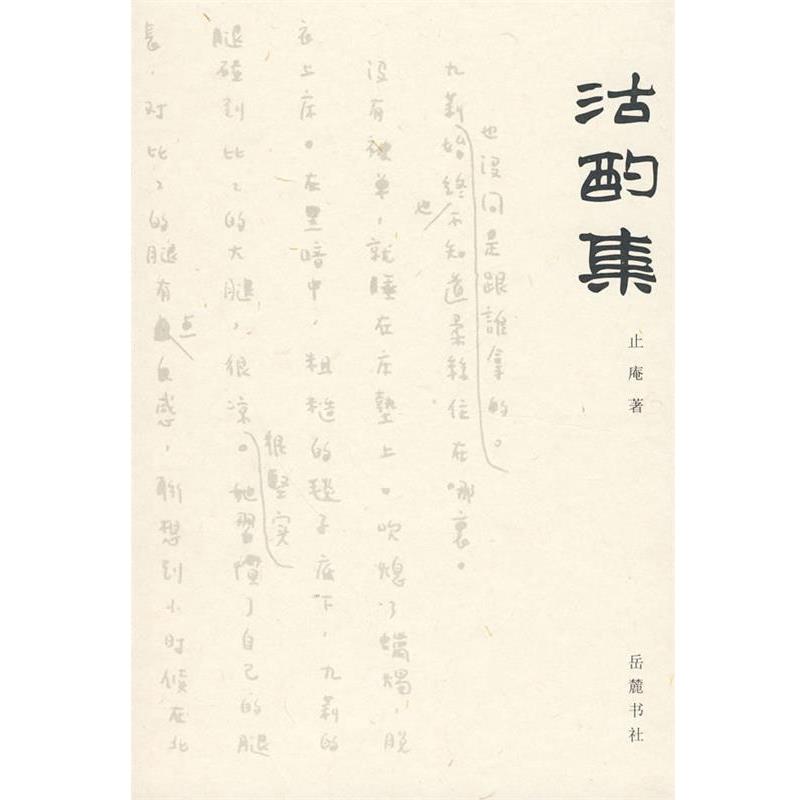 沽酌集
止庵著
岳麓书社
也没问是跟誰拿的。
九莉始終不知道柔絲住在哪裏。
也
没有被单，就睡在床墊上。吹熄了蠟燭，脱
衣上床。在黑暗中，粗糙的毯子底下，九莉的
很堅实
腿碰到比比的大腿，很凉。她習慣了自己的腿
長，对比比的腿有
点
自感，聯想到小时候在北